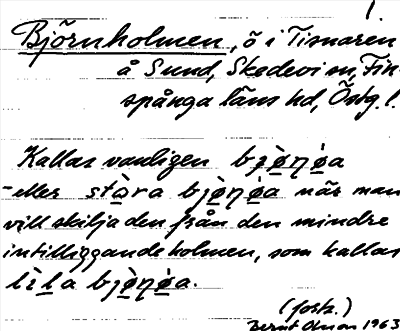 1.
Björnholmen, ö i Tisnaren
å Sund, Skedevi sn, Fin-
spånga läns hd, Östg. l.
Kallas vanligen bjø̀ṇø̀a
eller stòra bjø̀ṇø̀a när man
vill skilja den från den mindre
intilliggande holmen, som kallas
lìla bjø̀ṇø̀a.
(forts.)
Bernt Olsson 1963